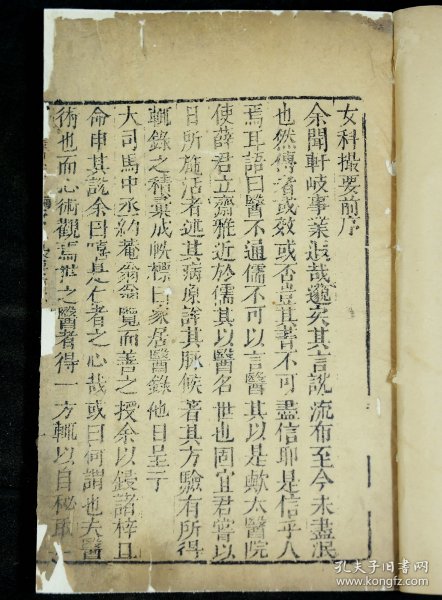 女科撮要前序
余聞軒岐事業遐哉邈矣其言說流布至今未盡泯
也然傳者或效或否豈其書不可盡信耶是信乎人
焉耳語曰醫不通儒不可以言醫其以是歟太醫院
使薛君立齋雅近於儒其以醫名世也固宜君嘗以
日所施治者述其病原詳其脉候著其方驗有所得
輒錄之積彙成帙標曰家居醫錄他日呈于
大司馬中丞約菴翁翁覽而善之授余以鋟諸梓且
命申其說余曰嘻是仁者之心哉或曰何謂也夫醫
術也而心術觀焉世之醫者得一方輒以自秘取
孔夫子旧书网
www.kongfz.com